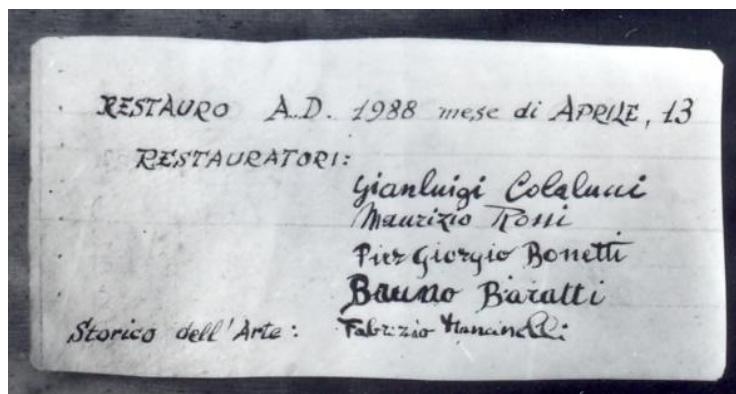 RESTAURO A.D. 1988 mese di APRILE, 13
RESTAURATORI:
Gianluigi Colalucci
Maurizio Rossi
Pier Giorgio Bonetti
Bruno Baratti
Storico dell'Arte: Fabrizio Mancinelli